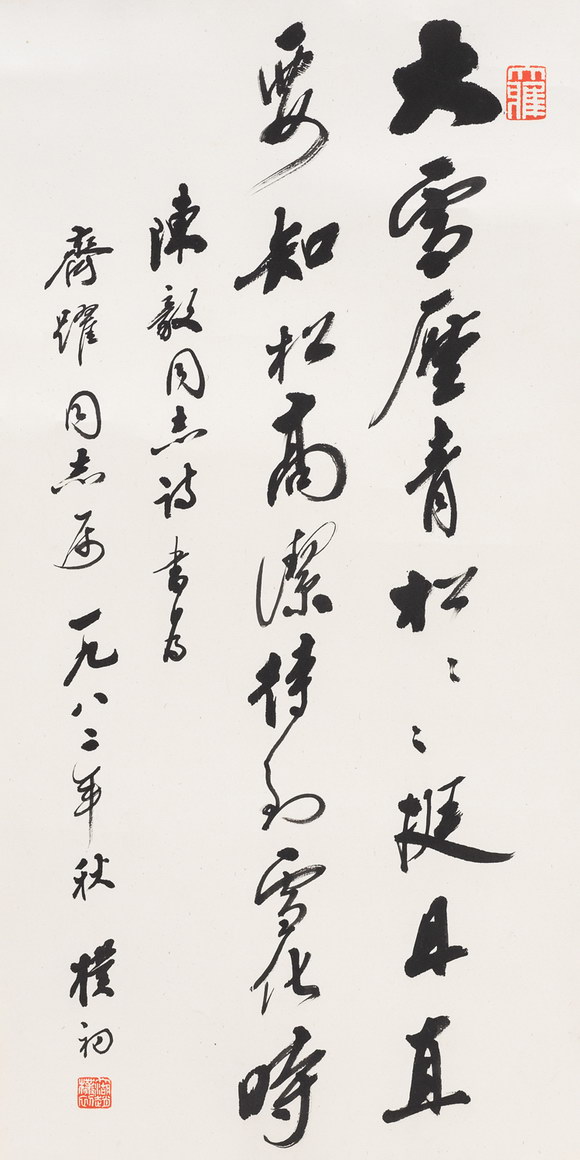 大雪壓青松〻〻挺且直
要知松高潔待到雪化時
陳毅同志詩書為
齊躍同志属 一九八二年秋 樸初